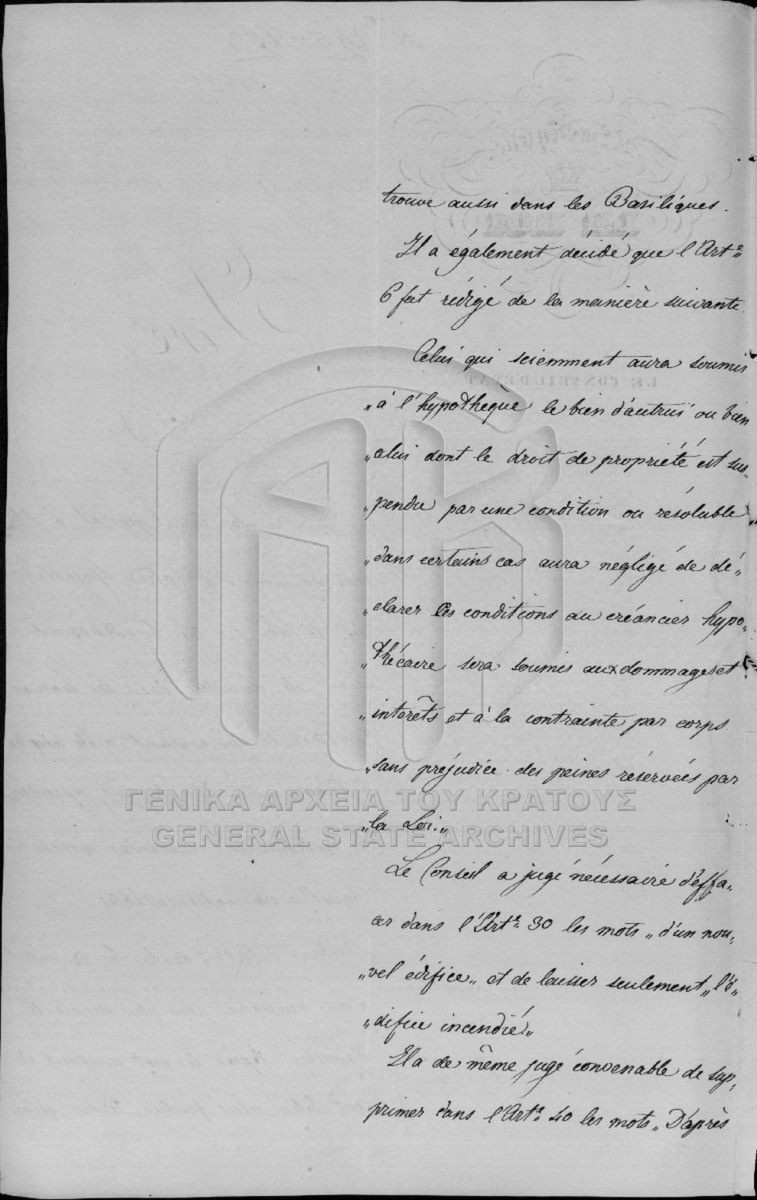 trouve aussi dans les Basiliques.
Il a également décidé que l'Art.e
6 fut rédigé de la manière suivante.
Celui qui sciemment aura soumis
„à l'hypothèque le bien d'autrui ou bien
„celui dont le droit de propriété est sus„
„pendu par une condition ou résoluble
„dans certains cas aura négligé de dé„
„clarer les conditions au créancier hypo„
„thécaire sera soumis aux dommages et
„interêts et à la contrainte par corps
„sans préjudice des peines réservées par
„la Loi.„
Le Conseil a jugé nécessaire d'effa„
cer dans l'Art.e 30 les mots „d'un nou„
„vel édifice„ et de laisser seulement „l'é„
„difice incendié„
Il a de même jugé convenable de sup„
primer dans l'Art.e 40 les mots „D'après
ΓΕΝΙΚΑ ΑΡΧΕΙΑ ΤΟΥ ΚΡΑΤΟΥΣ
GENERAL STATE ARCHIVES